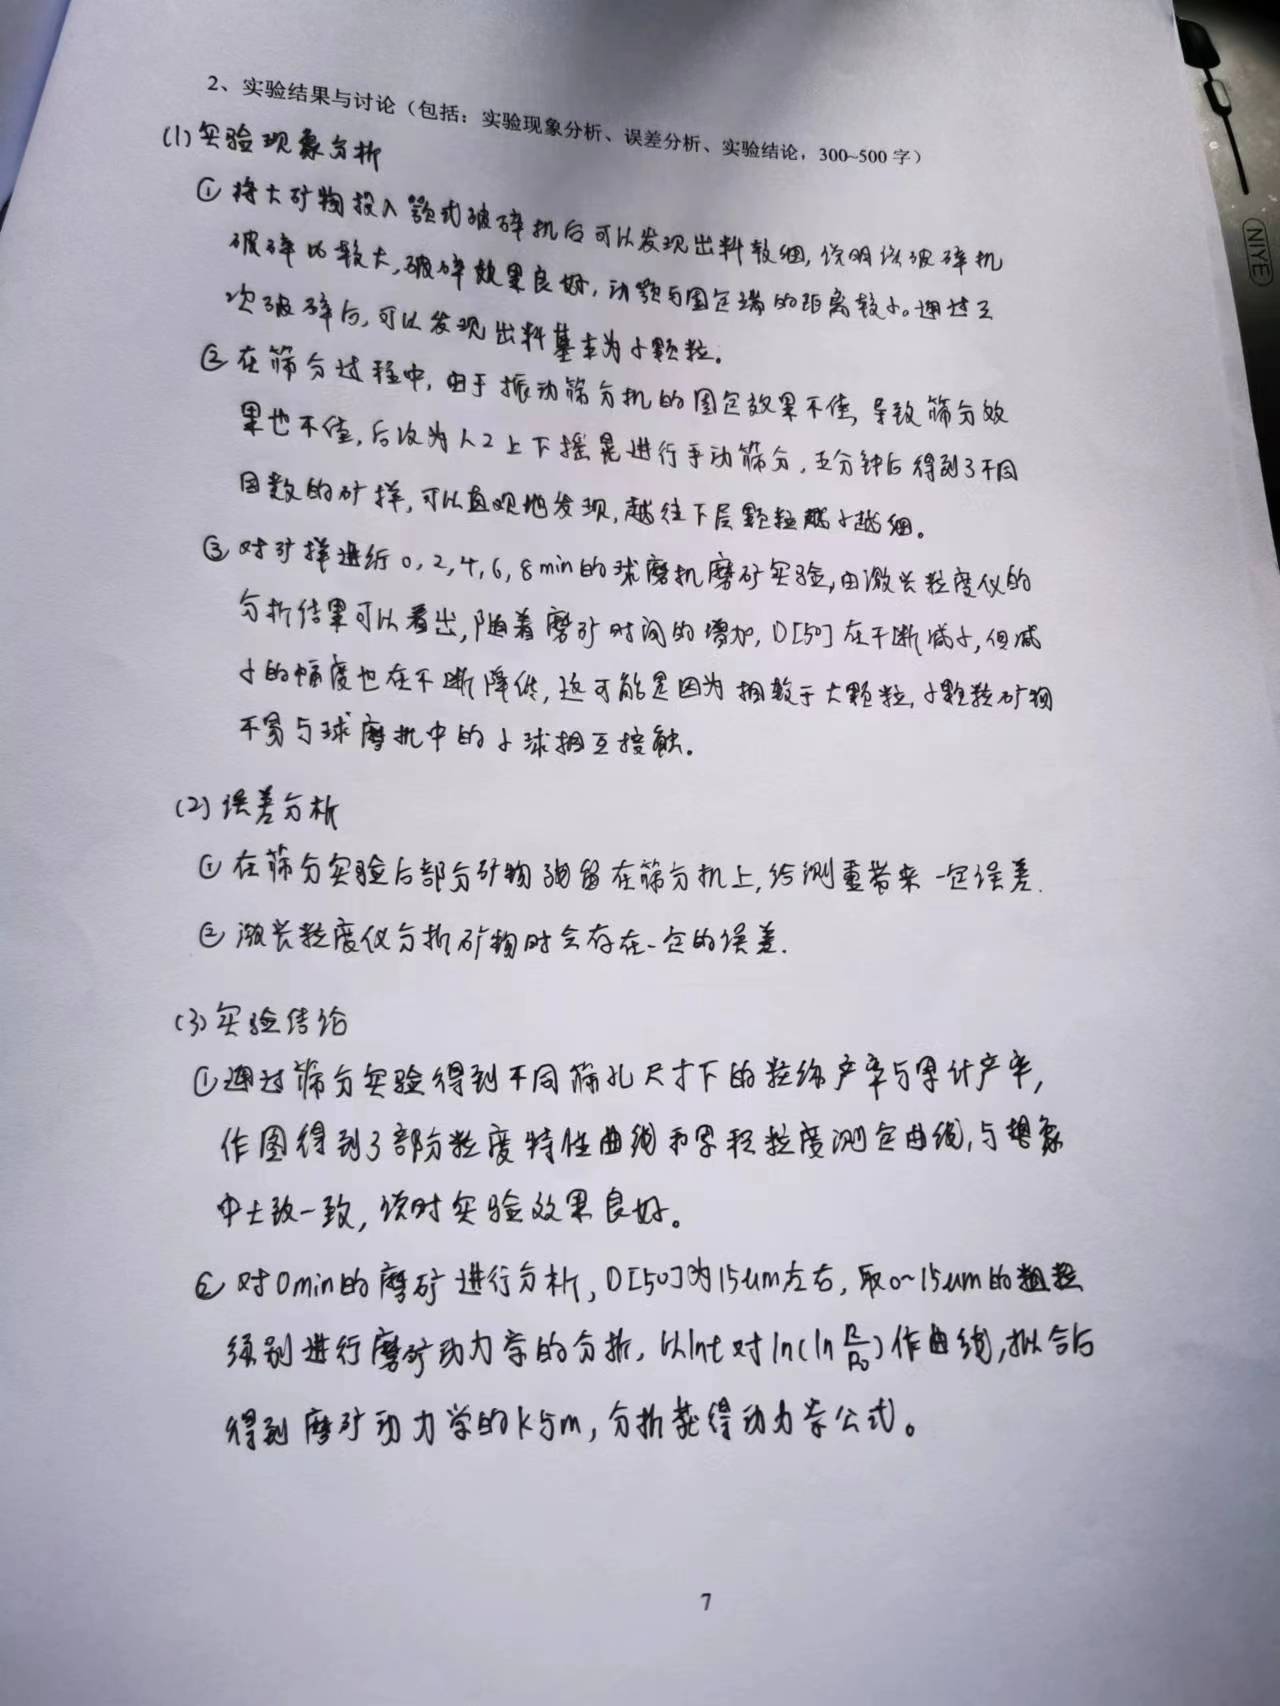 2、实验结果与讨论（包括：实验现象分析、误差分析、实验结论，300~500 字）
(1)实验现象分析
① 将大矿物投入颚式破碎机后可以发现出料较细,说明该破碎机
破碎比较大,破碎效果良好,动颚与固定端的距离较小。通过三
次破碎后,可以发现出料基本为小颗粒。
② 在筛分过程中,由于振动筛分机的固定效果不佳,导致筛分效
果也不佳,后改为人工上下摇晃进行手动筛分,五分钟后得到了不同
目数的矿样,可以直观地发现,越往下层颗粒越小越细。
③ 对矿样进行0,2,4,6,8min的球磨机磨矿实验,由激光粒度仪的
分析结果可以看出,随着磨矿时间的增加,D[50]在不断减小,但减
小的幅度也在不断降低,这可能是因为相较于大颗粒,小颗粒矿物
不易与球磨机中的小球相互接触。
(2)误差分析
① 在筛分实验后部分矿物残留在筛分机上,给测重带来一定误差.
② 激光粒度仪分析矿物时会存在一定的误差.
(3)实验结论
①通过筛分实验得到不同筛孔尺寸下的粒级产率与累计产率,
作图得到了部分粒度特性曲线和累积粒度测定曲线,与想象
中大致一致,说明实验效果良好。
② 对0min的磨矿进行分析,D[50]为15um左右,取0~15um的粗粒
级别进行磨矿动力学的分析,以lnt对ln(ln R/R₀)作曲线,拟合后
得到磨矿动力学的k与m,分析获得动力学公式。
7
NIYE